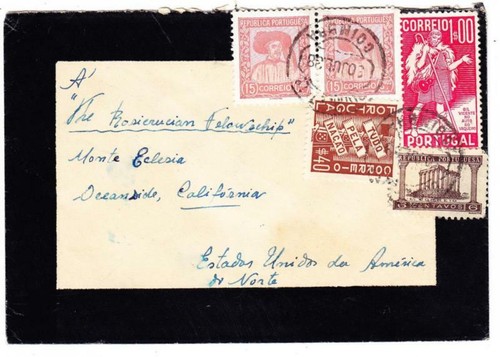 REPUBLICA PORTUGUESA
15 CORREIO 15
REPUBLICA PORTUGUESA
15 CORREIO
COIMBRA
CORREIO 1$00
GIL VICENTE
PORTUGAL
PORTUGAL
TUDO
PELA
NAÇÃO
CORREIO $40
REPUBLICA PORTUGUESA
CENTAVOS
À
"The Rosicrucian Fellowship"
Monte Eclesia
Oceanside, Califórnia
Estados Unidos da América
do Norte